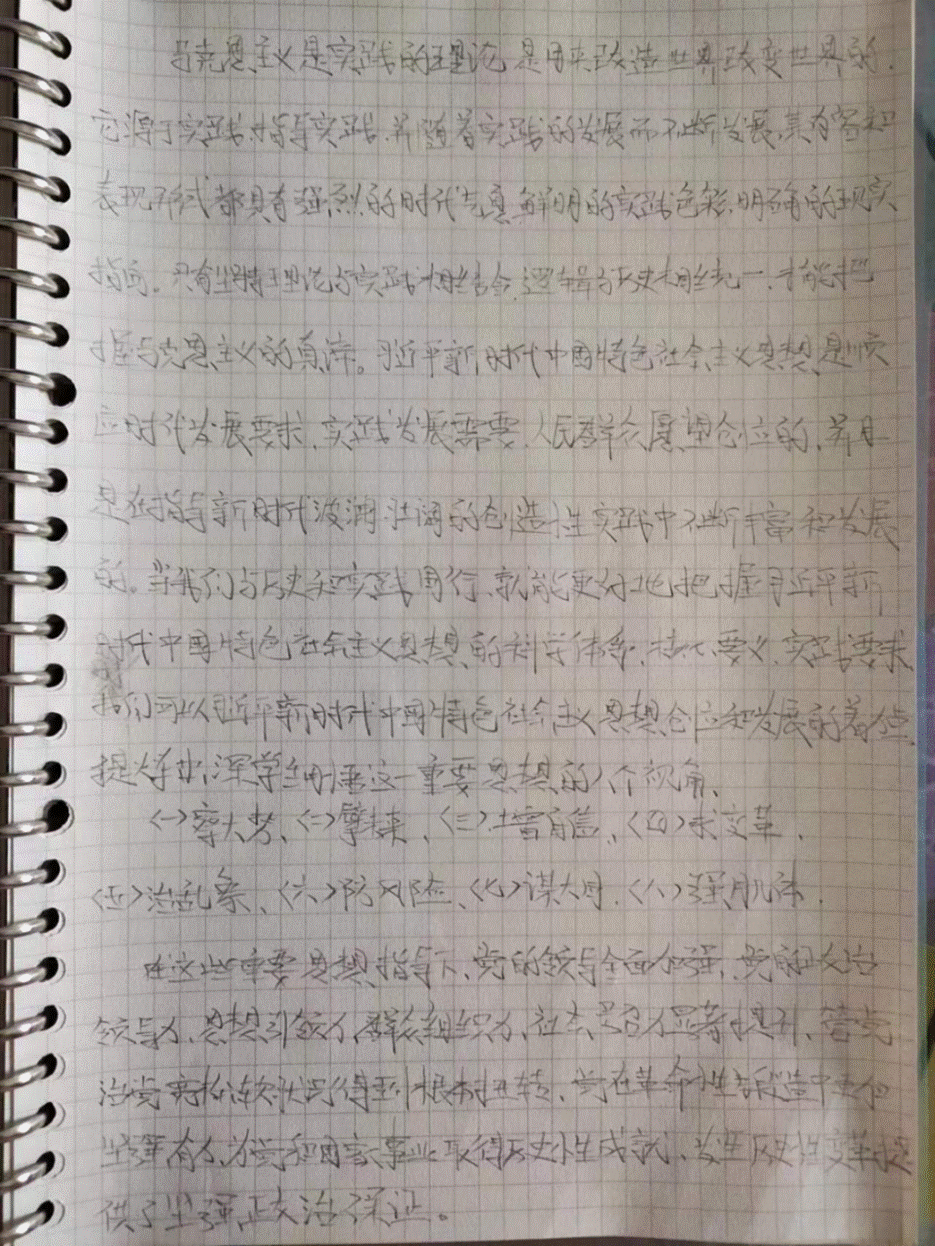 马克思主义是实践的理论,是用来改造世界改变世界的.
它源于实践,指导实践,并随着实践的发展而不断发展,其内容和
表现形式都具有强烈的时代气息,鲜明的实践色彩,明确的现实
指向。只有坚持理论与实践相结合,逻辑与历史相统一,才能把
握马克思主义的真谛。习近平新时代中国特色社会主义思想,是顺
应时代发展要求,实践发展需要,人民群众愿望创立的,并且
是在指导新时代波澜壮阔的创造性实践中不断丰富和发展
的。当我们与历史和实践同行,就能更好地把握习近平新
时代中国特色社会主义思想的科学体系,核心要义,实践要求,
我们可以从习近平新时代中国特色社会主义思想创立和发展的着力点,
提炼出,深学细悟这一重要思想的八个视角,
<一>察大势、<二>擘未来、<三>增自信、<四>求变革、
<五>治乱象、<六>防风险、<七>谋大同、<八>强肌体.
在这些重要思想指导下,党的领导全面加强,党的政治
领导力,思想引领力,群众组织力,社会号召力显著提升,管党
治党宽松软状况得到根本扭转,党在革命性锻造中更加
坚强有力,为党和国家事业取得历史性成就,发生历史性变革提
供了坚强政治保证。